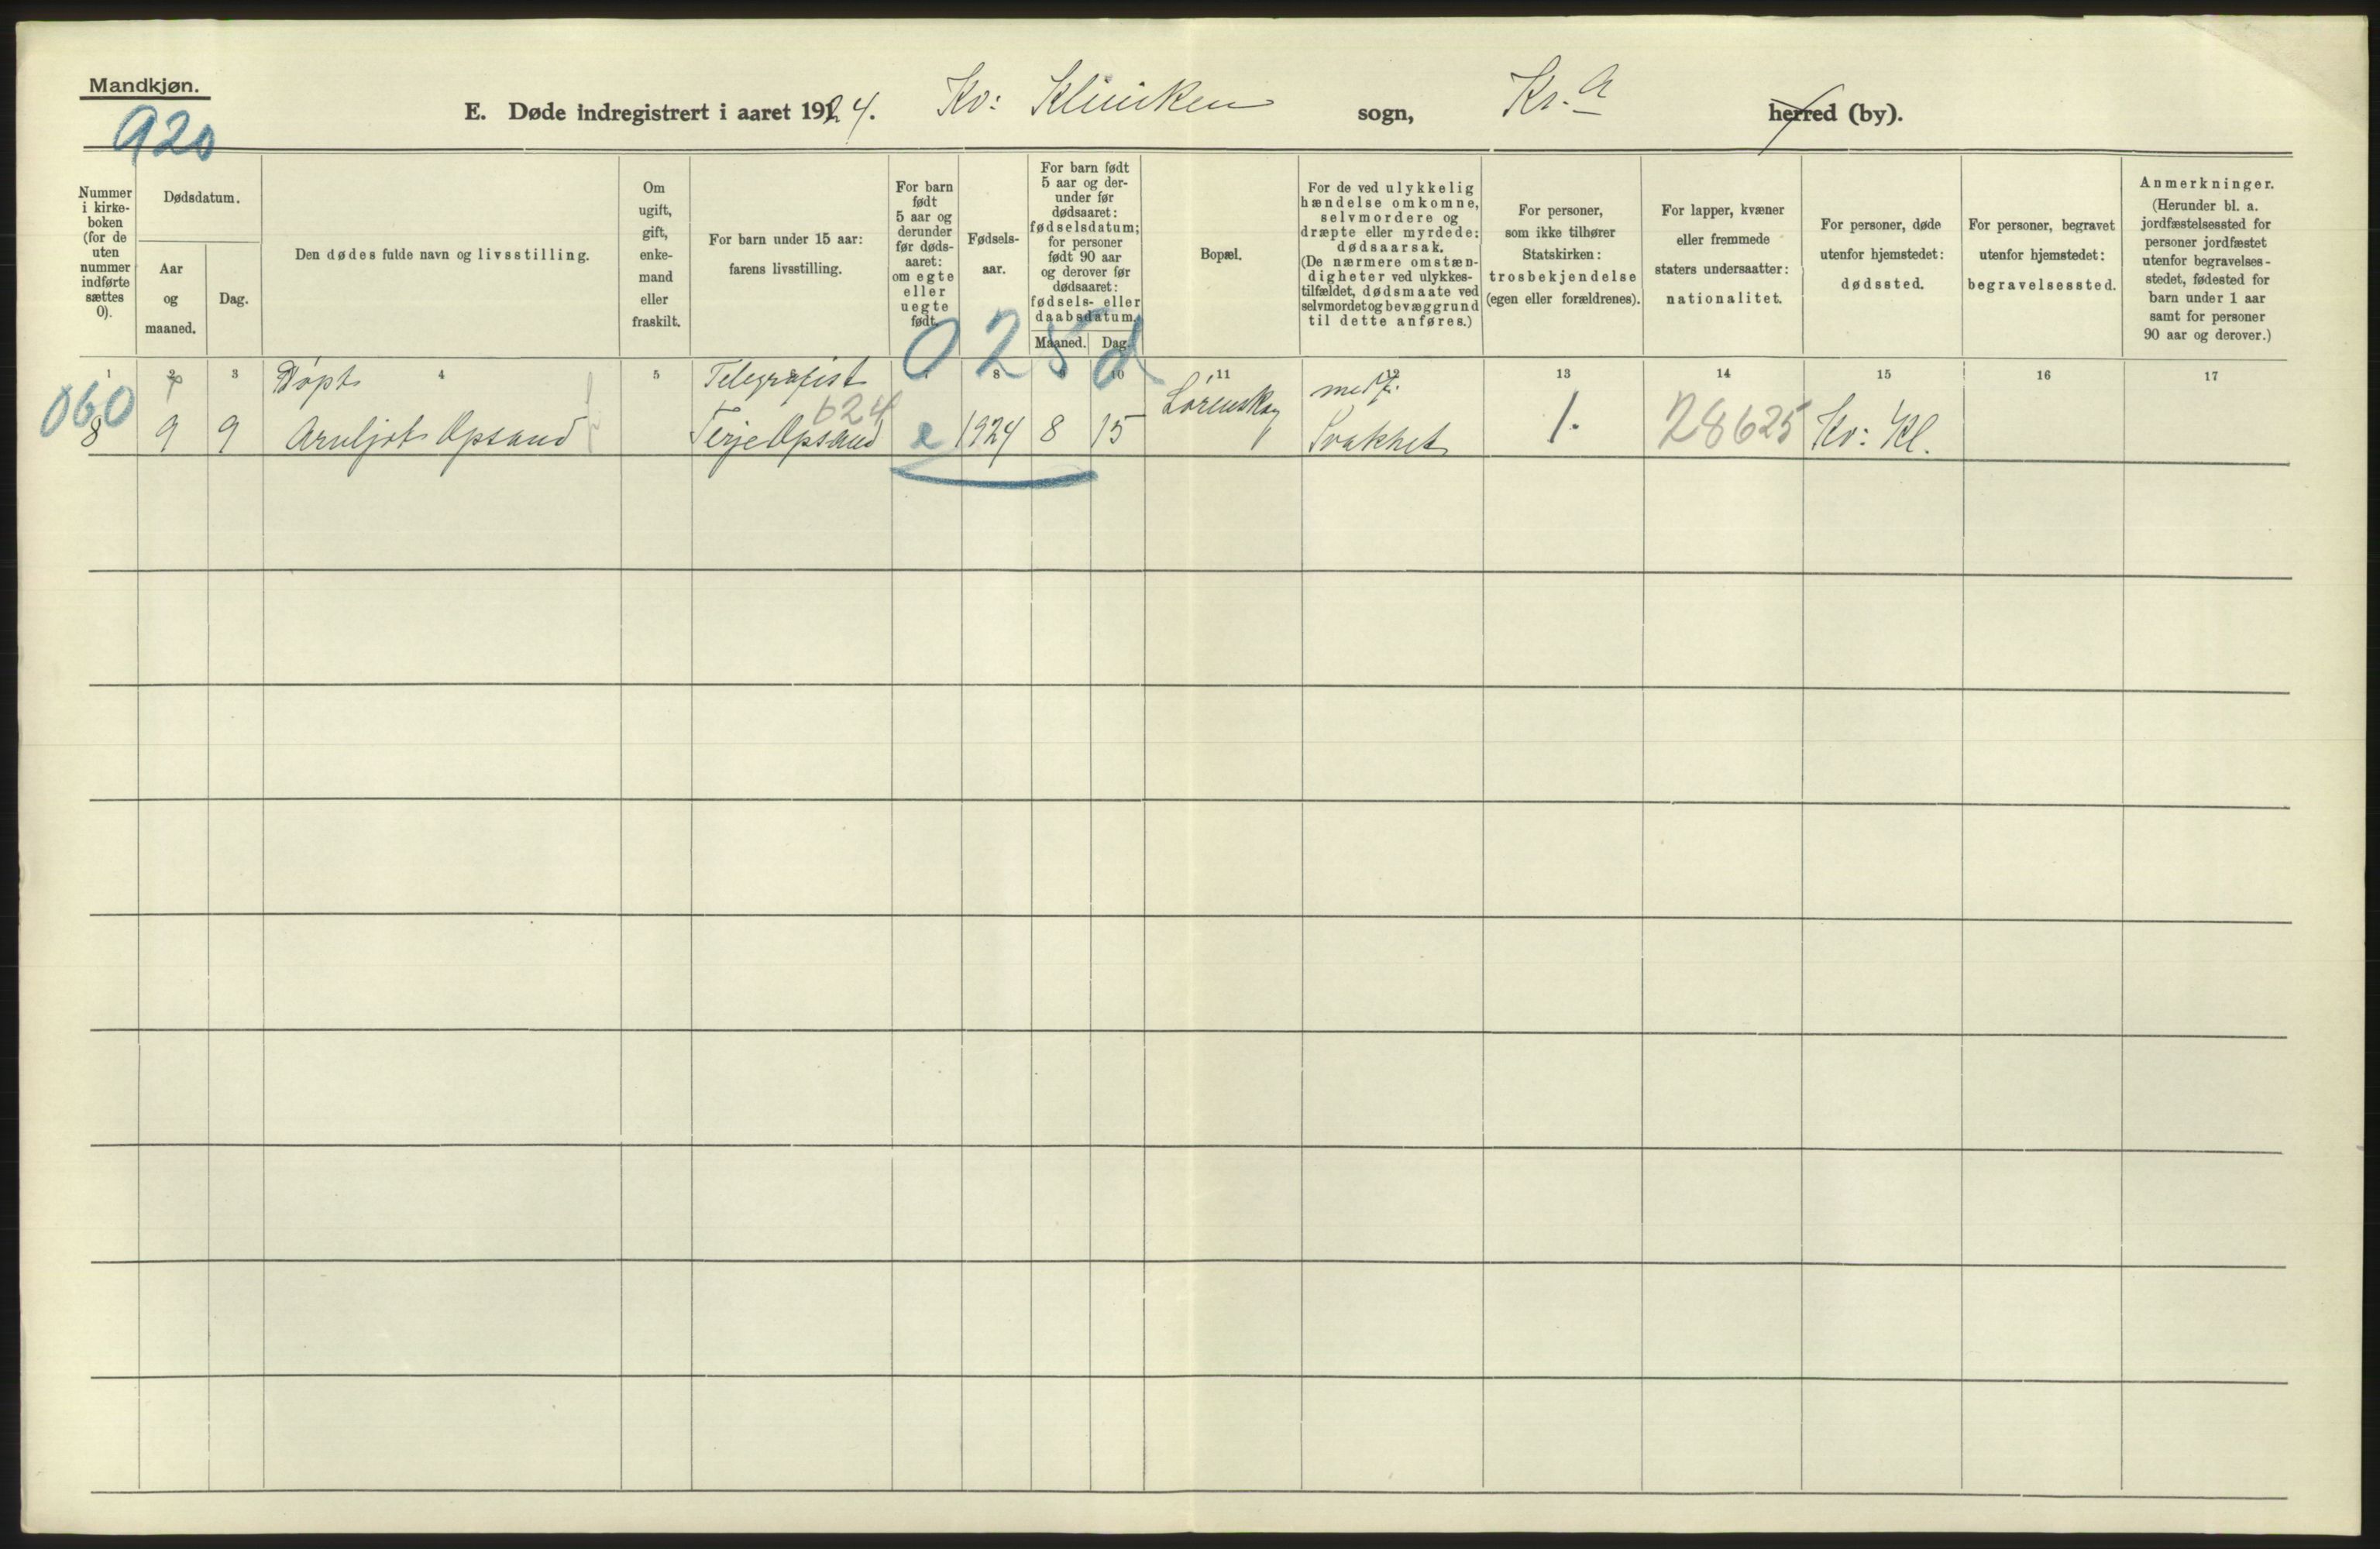 Mandkjøn.
920
E. Døde indregistrert i aaret 1924. Kv: Kliniken sogn, Kr.a herred (by).
Nummer
i kirke-
boken
(for de
uten
nummer
indførte
sættes
0).
Dødsdatum.
Aar
og
maaned.
Dag.
Den dødes fulde navn og livsstilling.
Om
ugift,
gift,
enke-
mand
eller
fraskilt.
For barn under 15 aar:
farens livsstilling.
For barn
født
5 aar og
derunder
før døds-
aaret:
om egte
eller
uegte
født.
Fødsels-
aar.
For barn født
5 aar og der-
under før
dødsaaret:
fødselsdatum;
for personer
født 90 aar
og derover før
dødsaaret:
fødsels- eller
daabsdatum.
Maaned. Dag.
Bopæl.
For de ved ulykkelig
hændelse omkomne,
selvmordere og
dræpte eller myrdede:
dødsaarsak.
(De nærmere omstæn-
digheter ved ulykkes-
tilfældet, dødsmaate ved
selvmordet og bevæggrund
til dette anføres.)
For personer,
som ikke tilhører
Statskirken:
trosbekjendelse
(egen eller forældrenes).
For lapper, kvæner
eller fremmede
staters undersaatter:
nationalitet.
For personer, døde
utenfor hjemstedet:
dødssted.
For personer, begravet
utenfor hjemstedet:
begravelsessted.
Anmerkninger.
(Herunder bl. a.
jordfæstelsessted for
personer jordfæstet
utenfor begravelses-
stedet, fødested for
barn under 1 aar
samt for personer
90 aar og derover.)
025d
1 2 3 4 5 8 10 11 12 13 14 15 16 17
Døpt Telegrafist Lørenskog medf.
060 624
8 9 9 Arnljot Opsand Terje Opsand e 1924 8 15 Svakhet 1. 28625 Kv: Kl.